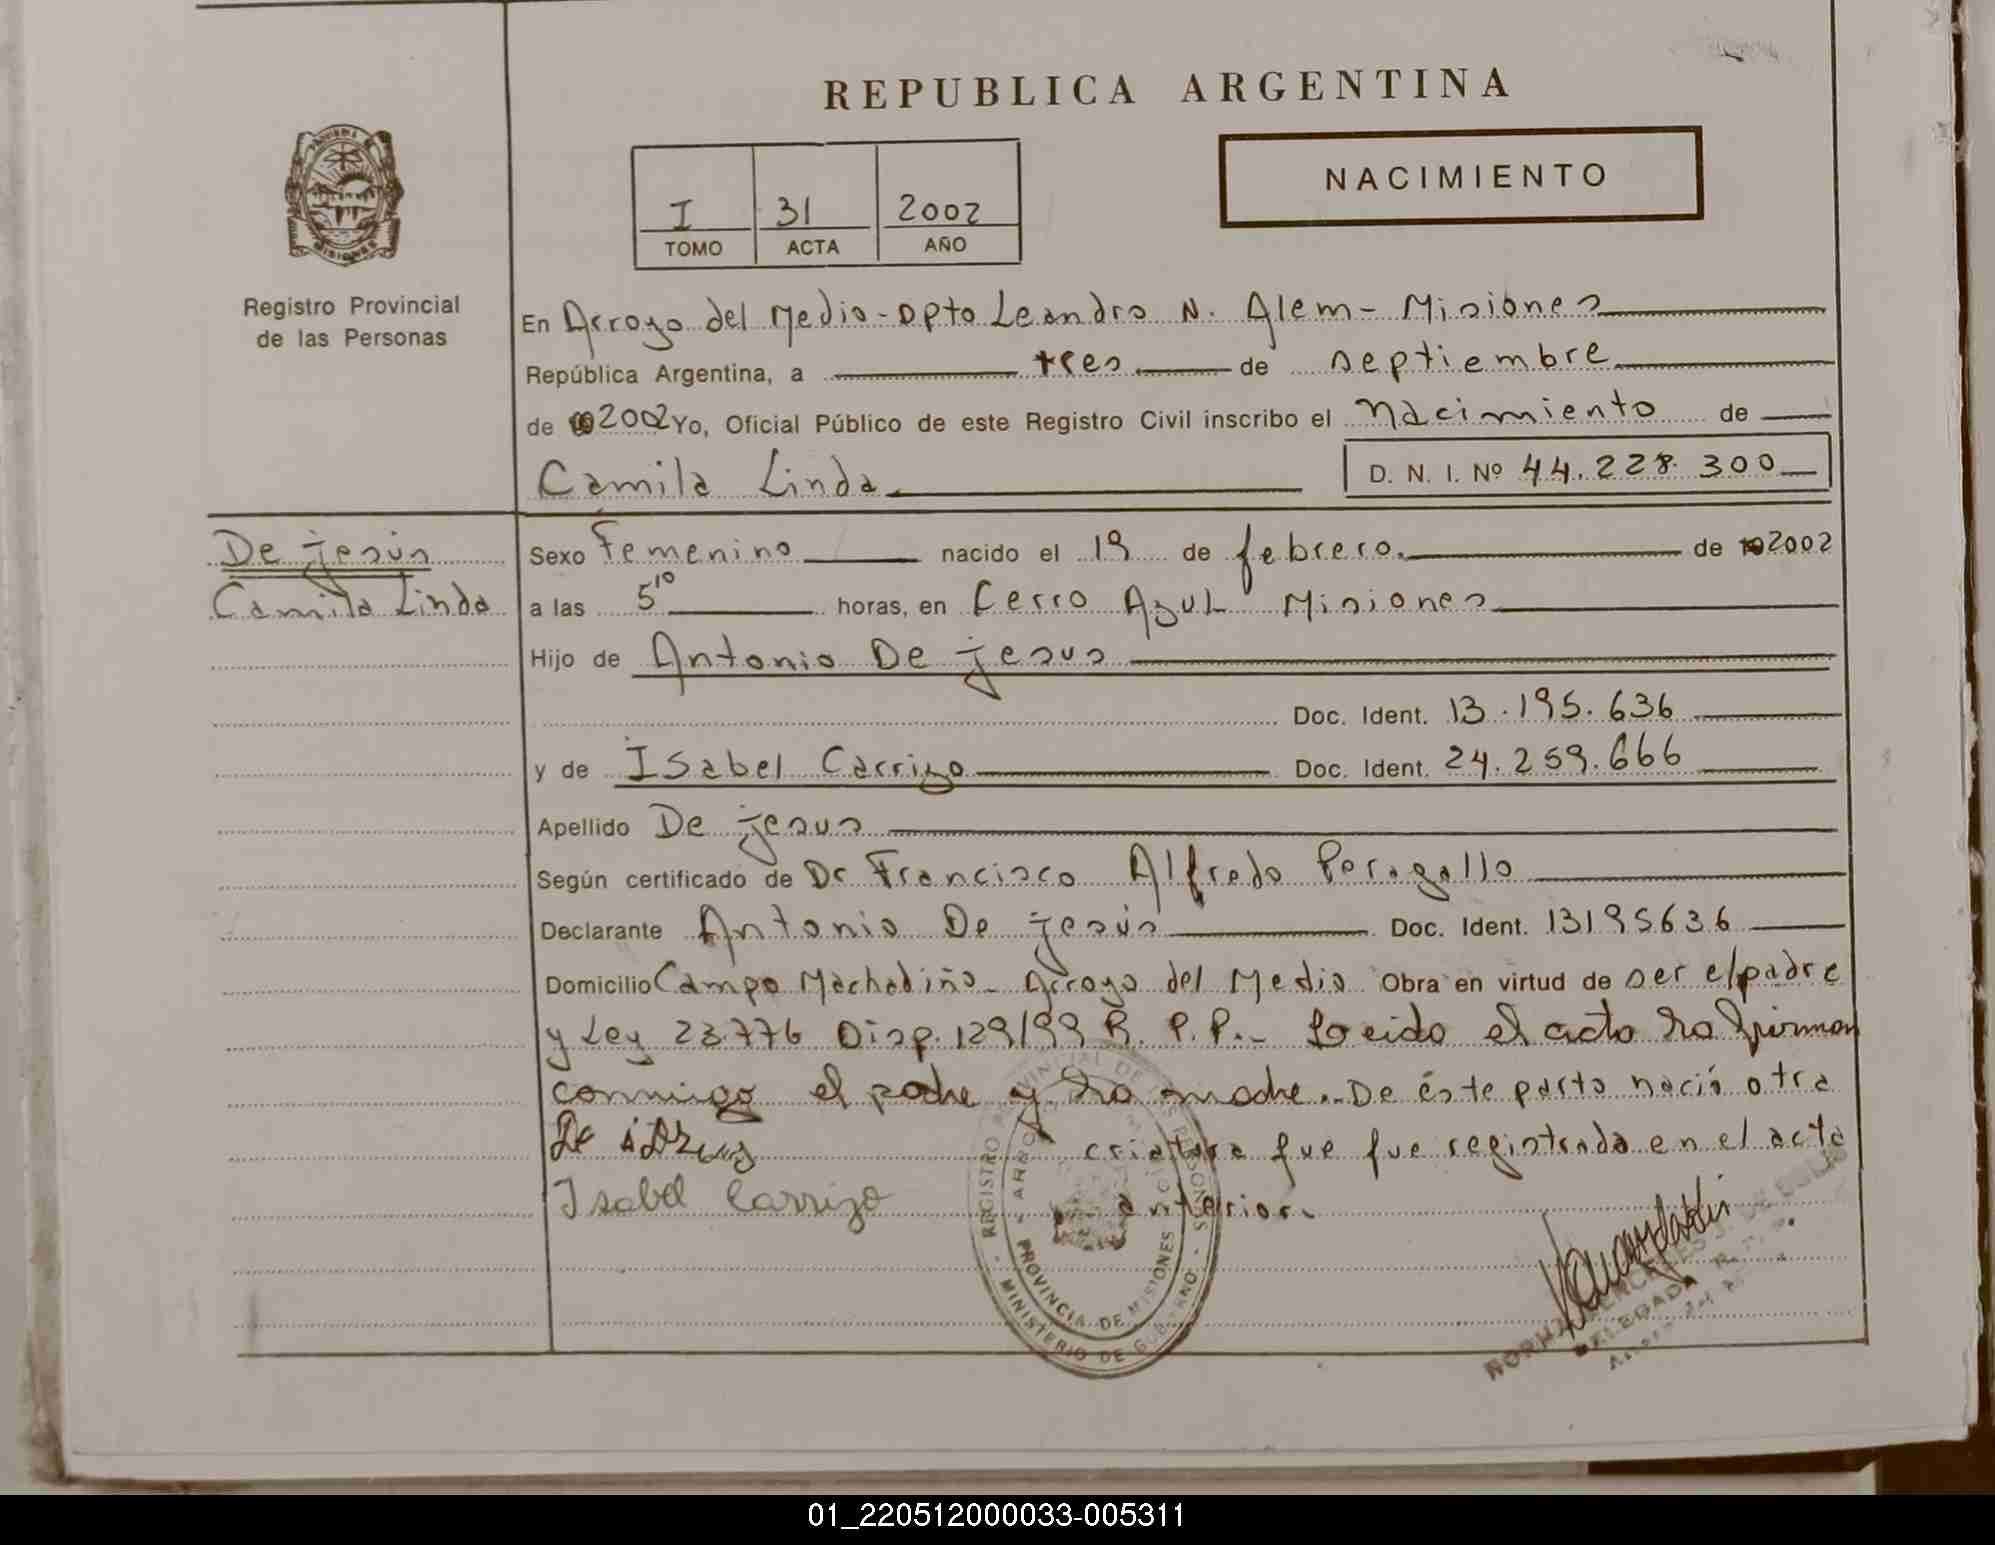 REPUBLICA ARGENTINA
NACIMIENTO
I 31 2002
TOMO ACTA AÑO
MISIONES
Registro Provincial
de las Personas
En Arroyo del Medio - Dpto Leandro N. Alem - Misiones
República Argentina, a tres de septiembre
de 2002 Yo, Oficial Público de este Registro Civil inscribo el nacimiento de
Camila Linda D. N. I. Nº 44.228.300
De jesús
Camila Linda
Sexo Femenino nacido el 19 de febrero. de 2002
a las 5¹⁰ horas, en Cerro Azul Misiones
Hijo de Antonio De jesus
Doc. Ident. 13.195.636
y de Isabel Carrizo Doc. Ident. 24.259.666
Apellido De jesus
Según certificado de Dr Francisco Alfredo Peragallo
Declarante Antonio De jesús Doc. Ident. 13195636
Domicilio Campo Machadiño - Arroyo del Medio Obra en virtud de ser el padre
y Ley 23.776 Disp. 129/99 R. P.P.- Leido el acta la firman
conmigo el padre y la madre. De éste parto nació otra
De criatura que fue registrada en el acta
Isabel Carrizo anterior.
REGISTRO PROVINCIAL DE LAS PERSONAS
MINISTERIO DE GOBIERNO
PROVINCIA DE MISIONES
DELEGADA
01_220512000033-005311